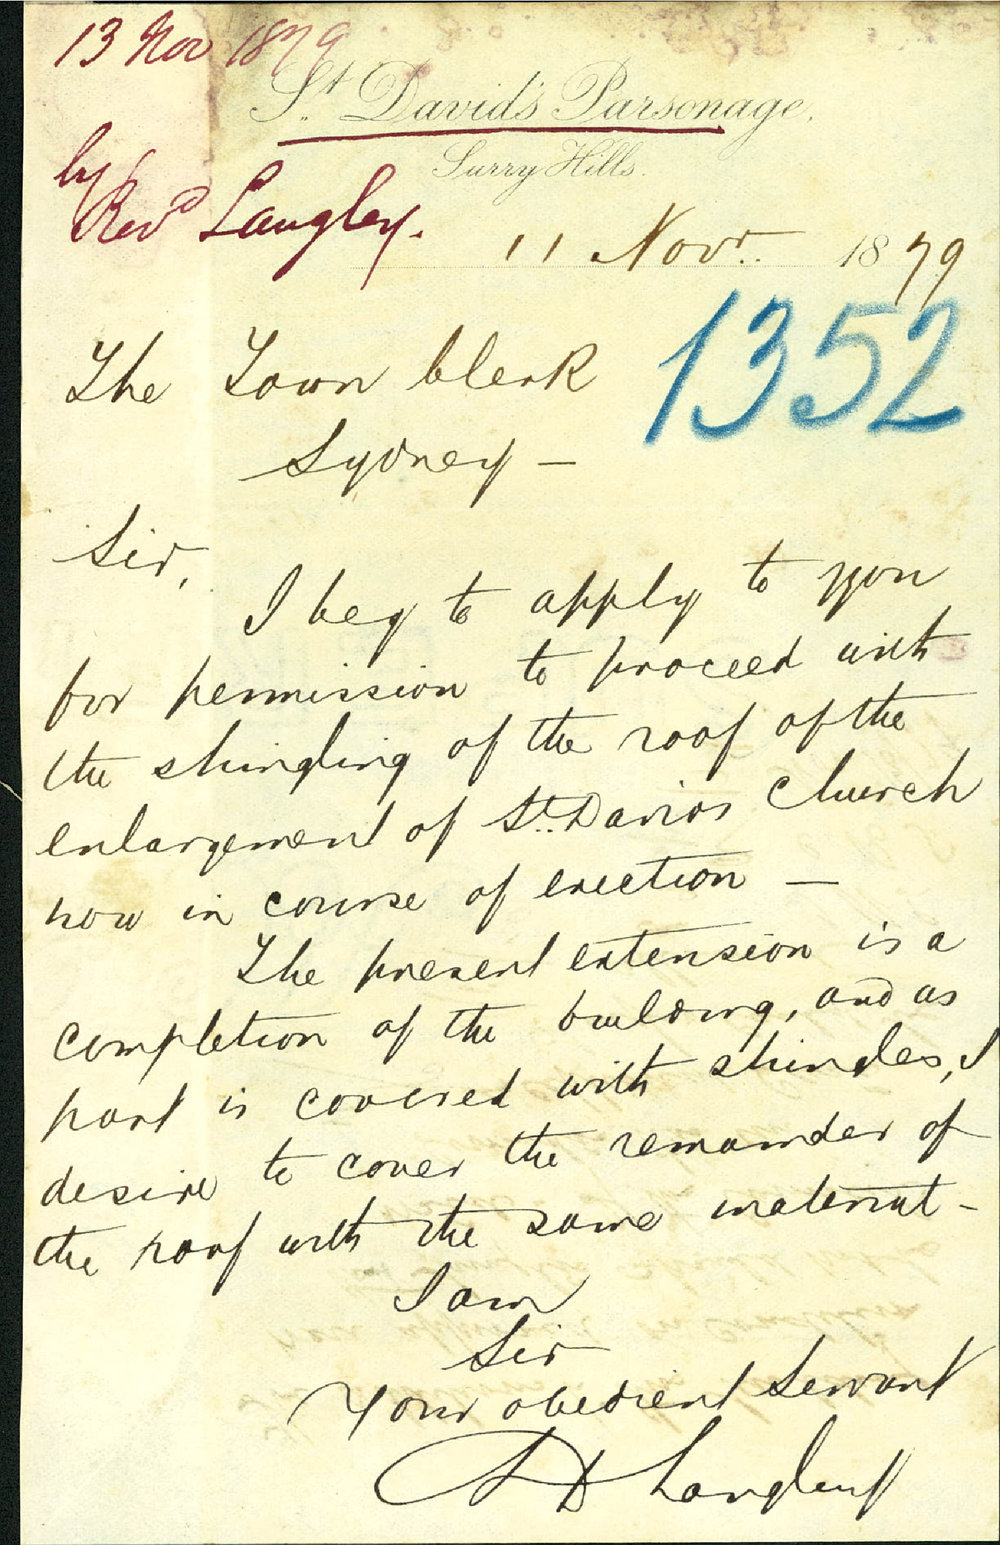 13 Nov 1879
St. David's Parsonage,
Surry Hills.
by
Revd Langley.
11 Novr. 1879
1352
The Town Clerk
Sydney –
Sir,
I beg to apply to you
for permission to proceed with
the shingling of the roof of the
enlargement of St. Davids Church
now in course of erection –
The present extension is a
completion of the building, and as
part is covered with shingles, I
desire to cover the remainder of
the roof with the same material –
I am
Sir
Your obedient Servant
Langley